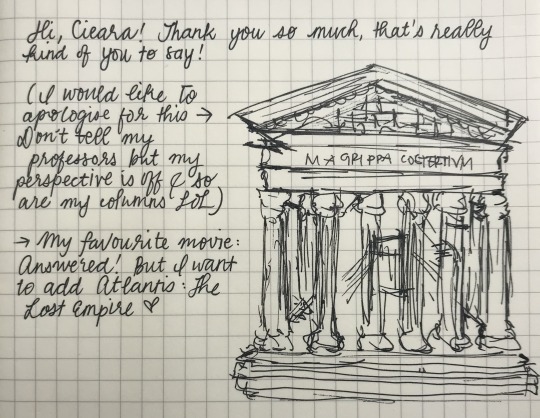 Hi, Cieara! Thank you so much, that's really
kind of you to say!
(I would like to
apologise for this →
Don't tell my
professors but my
perspective is off & so
are my columns LOL)
M A GRIPPA COSTERTIVM
→ My favourite movie:
Answered! But I want
to add Atlantis: The
Lost Empire ♡